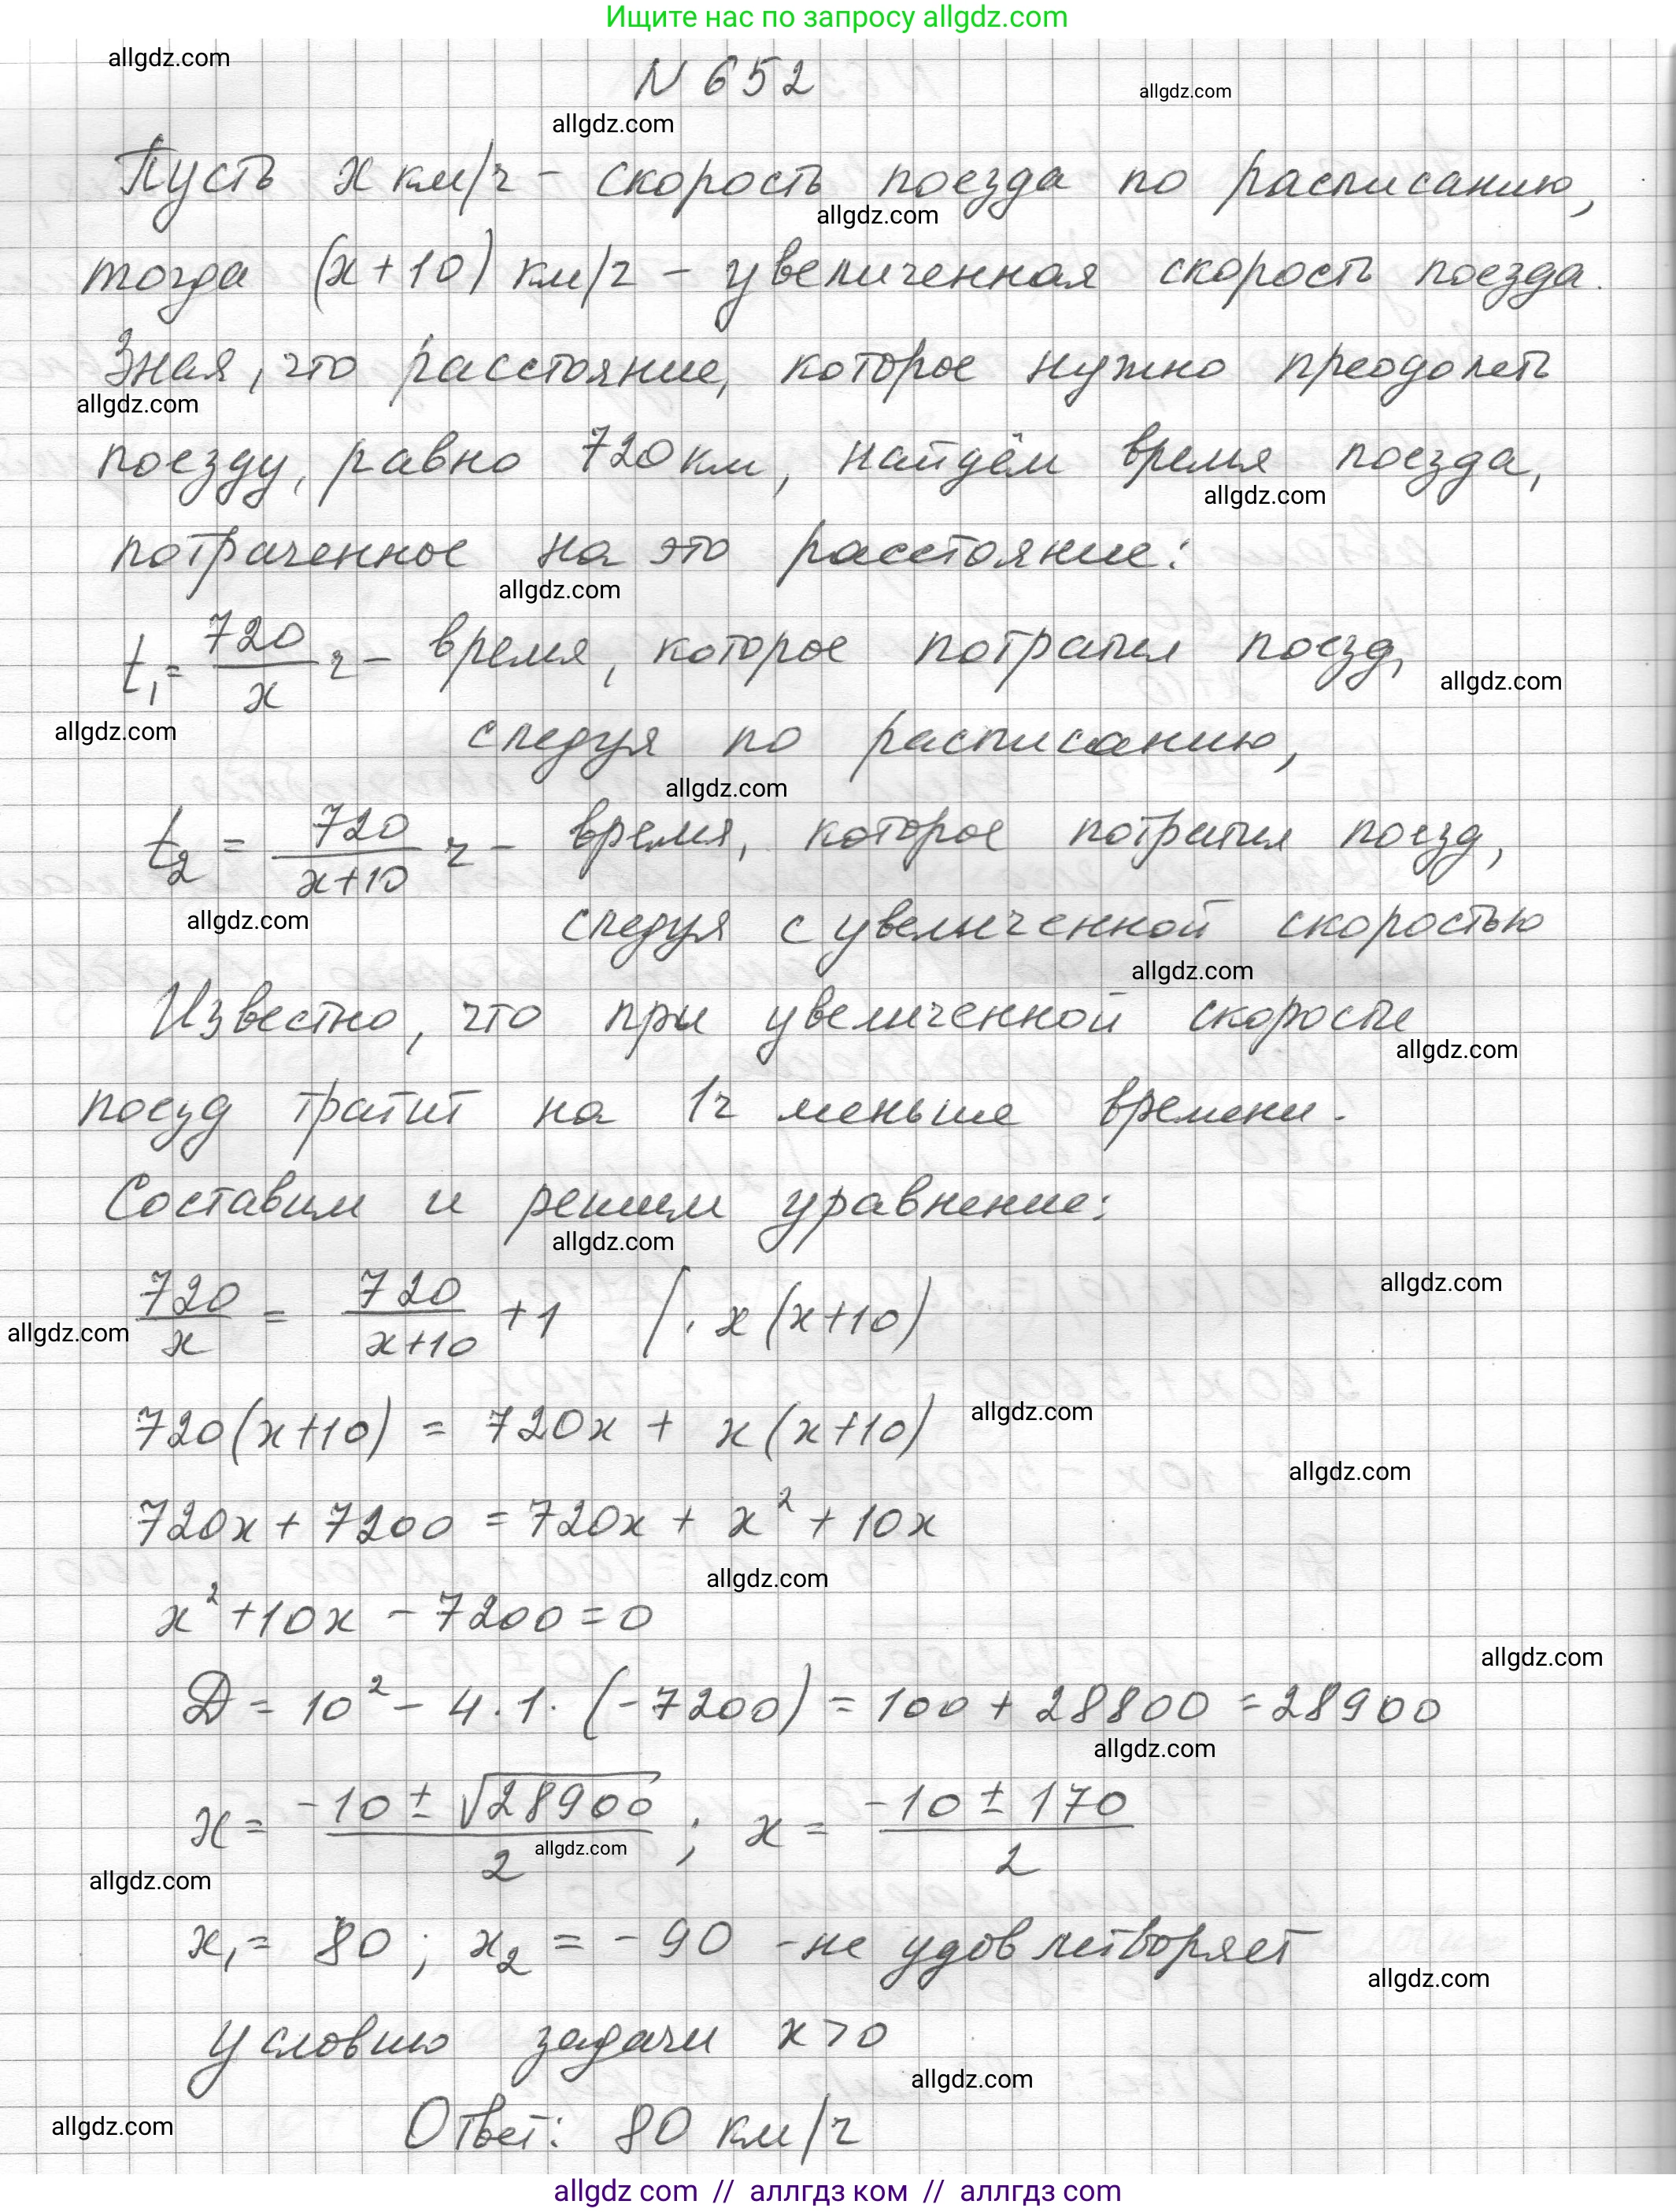 Ищите нас по запросу allgdz.com
allgdz.com
N 652
allgdz.com
allgdz.com
Пусть x км/ч – скорость поезда по расписанию,
allgdz.com
тогда (x+10) км/ч – увеличенная скорость поезда.
Зная, что расстояние, которое нужно преодолеть
allgdz.com
поезду, равно 720 км, найдём время поезда,
allgdz.com
потраченное на это расстояние:
allgdz.com
t₁ = 720/x ч – время, которое потратил поезд,
allgdz.com
allgdz.com
следуя по расписанию,
allgdz.com
t₂ = 720/(x+10) ч – время, которое потратил поезд,
allgdz.com
следуя с увеличенной скоростью
allgdz.com
Известно, что при увеличенной скорости
allgdz.com
поезд тратит на 1ч меньше времени.
Составим и решим уравнение:
allgdz.com
allgdz.com
720/x = 720/(x+10) + 1 | · x(x+10)
allgdz.com
720(x+10) = 720x + x(x+10)
allgdz.com
allgdz.com
720x + 7200 = 720x + x² + 10x
allgdz.com
x² + 10x – 7200 = 0
allgdz.com
D = 10² – 4 · 1 · (–7200) = 100 + 28800 = 28900
allgdz.com
x = (–10 ± √28900)/2 ; x = (–10 ± 170)/2
allgdz.com
allgdz.com
x₁ = 80 ; x₂ = –90 – не удовлетворяет
allgdz.com
условию задачи x>0
allgdz.com
allgdz.com
Ответ: 80 км/ч
allgdz com // аллгдз ком // аллгдз.com